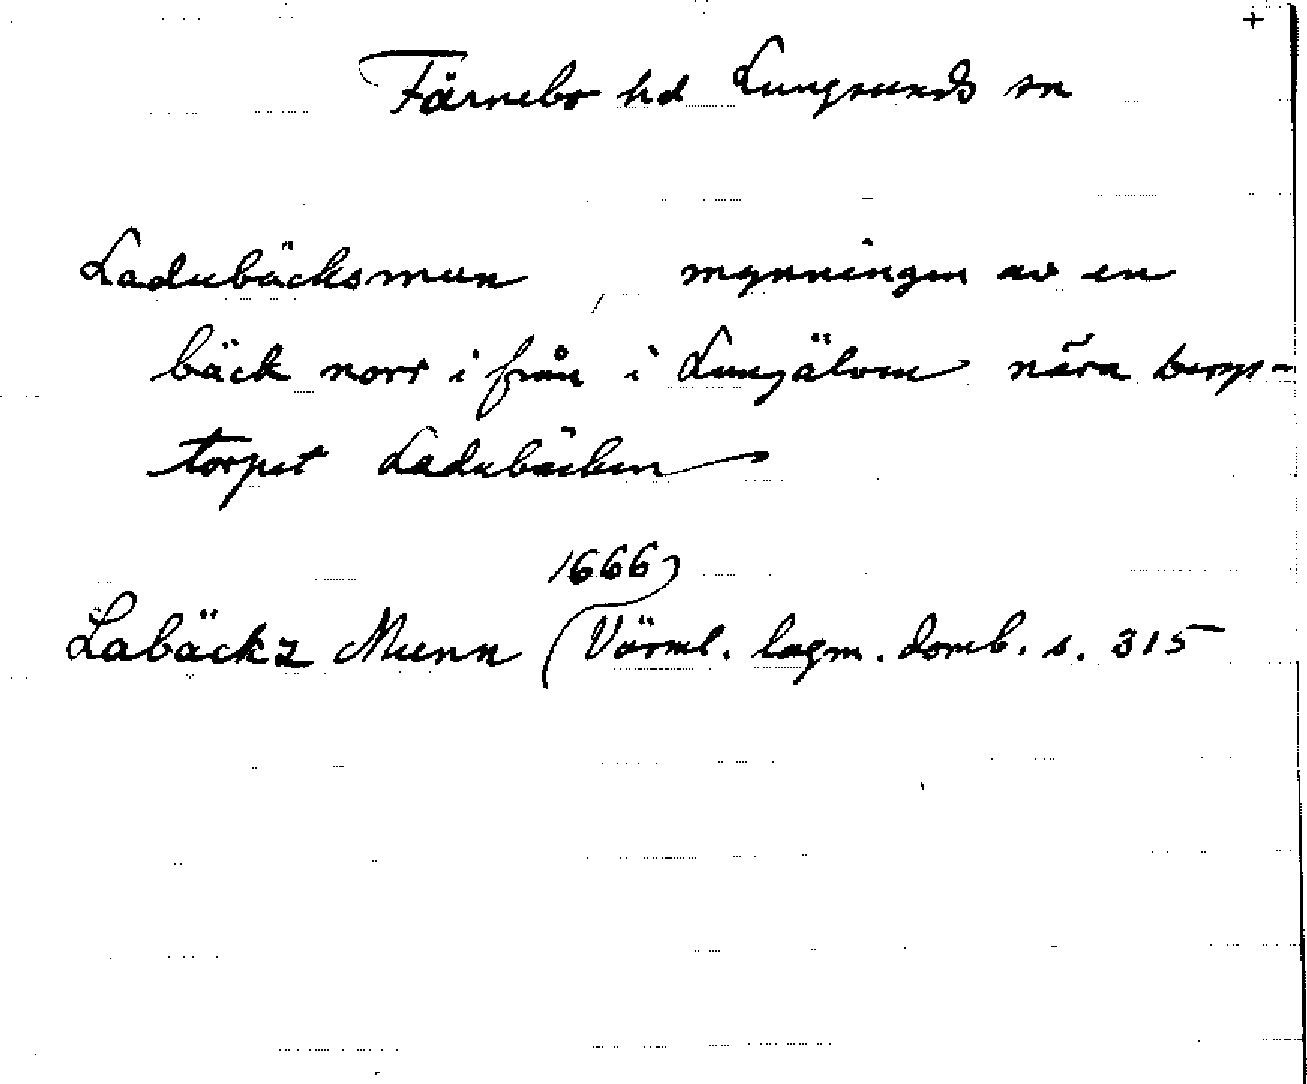 +
Färnebo hd Lungsunds sn
Ladubäcksmun, mynningen av en
bäck norr ifrån i Lungälven nära bergs-
torpet Ladubäcken
1666
Labäckz Munn (Värml. lagm. domb. s. 315